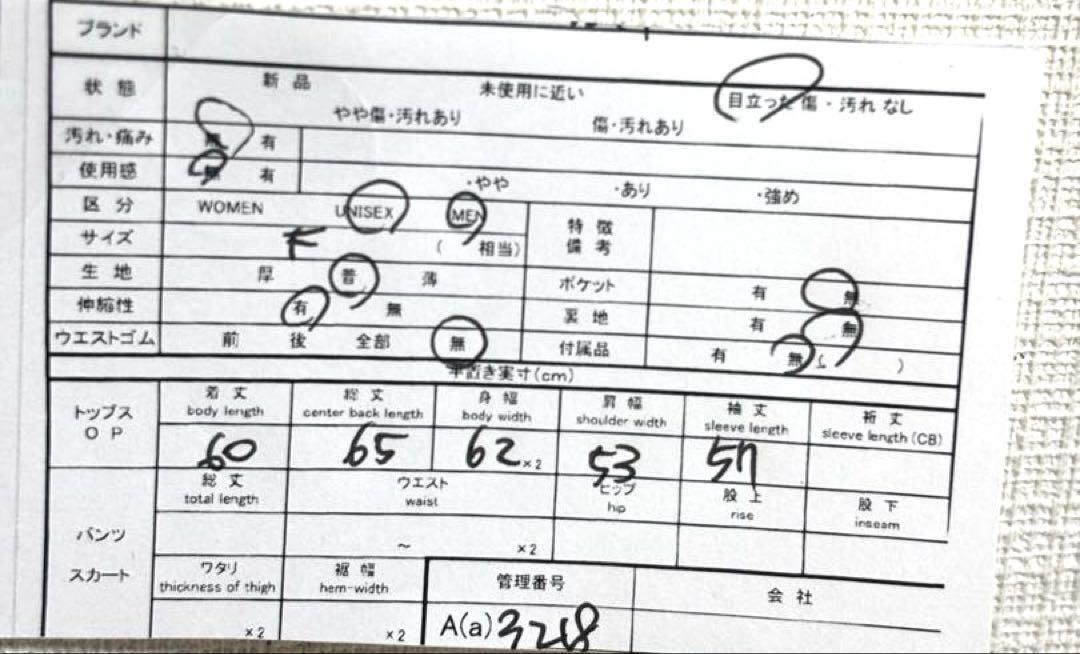 ブランド
状態 新品 未使用に近い 目立った傷・汚れなし
やや傷・汚れあり 傷・汚れあり
汚れ・痛み 無 有
使用感 無 有 ・やや ・あり ・強め
区分 WOMEN UNISEX MEN 特徴
備考
サイズ F ( 相当)
生地 厚 普 薄 ポケット 有 無
伸縮性 有 無 裏地 有 無
ウエストゴム 前 後 全部 無 付属品 有 無 ( )
平置き実寸(cm)
トップス
OP
着丈 総丈 身幅 肩幅 袖丈 裄丈
body length center back length body width shoulder width sleeve length sleeve length (CB)
60 65 62 ×2 53 57
パンツ
スカート
総丈 ウエスト ヒップ 股上 股下
total length waist hip rise inseam
~ ×2
ワタリ 裾幅 管理番号 会社
thickness of thigh hem-width
×2 ×2 A(a) 3218